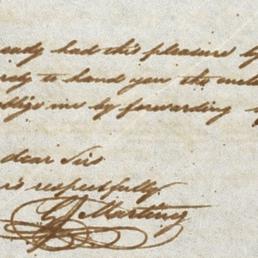 eady had this pleasure by
to hand you the
me by forwarding
dear Sir
respectfully
Martiny